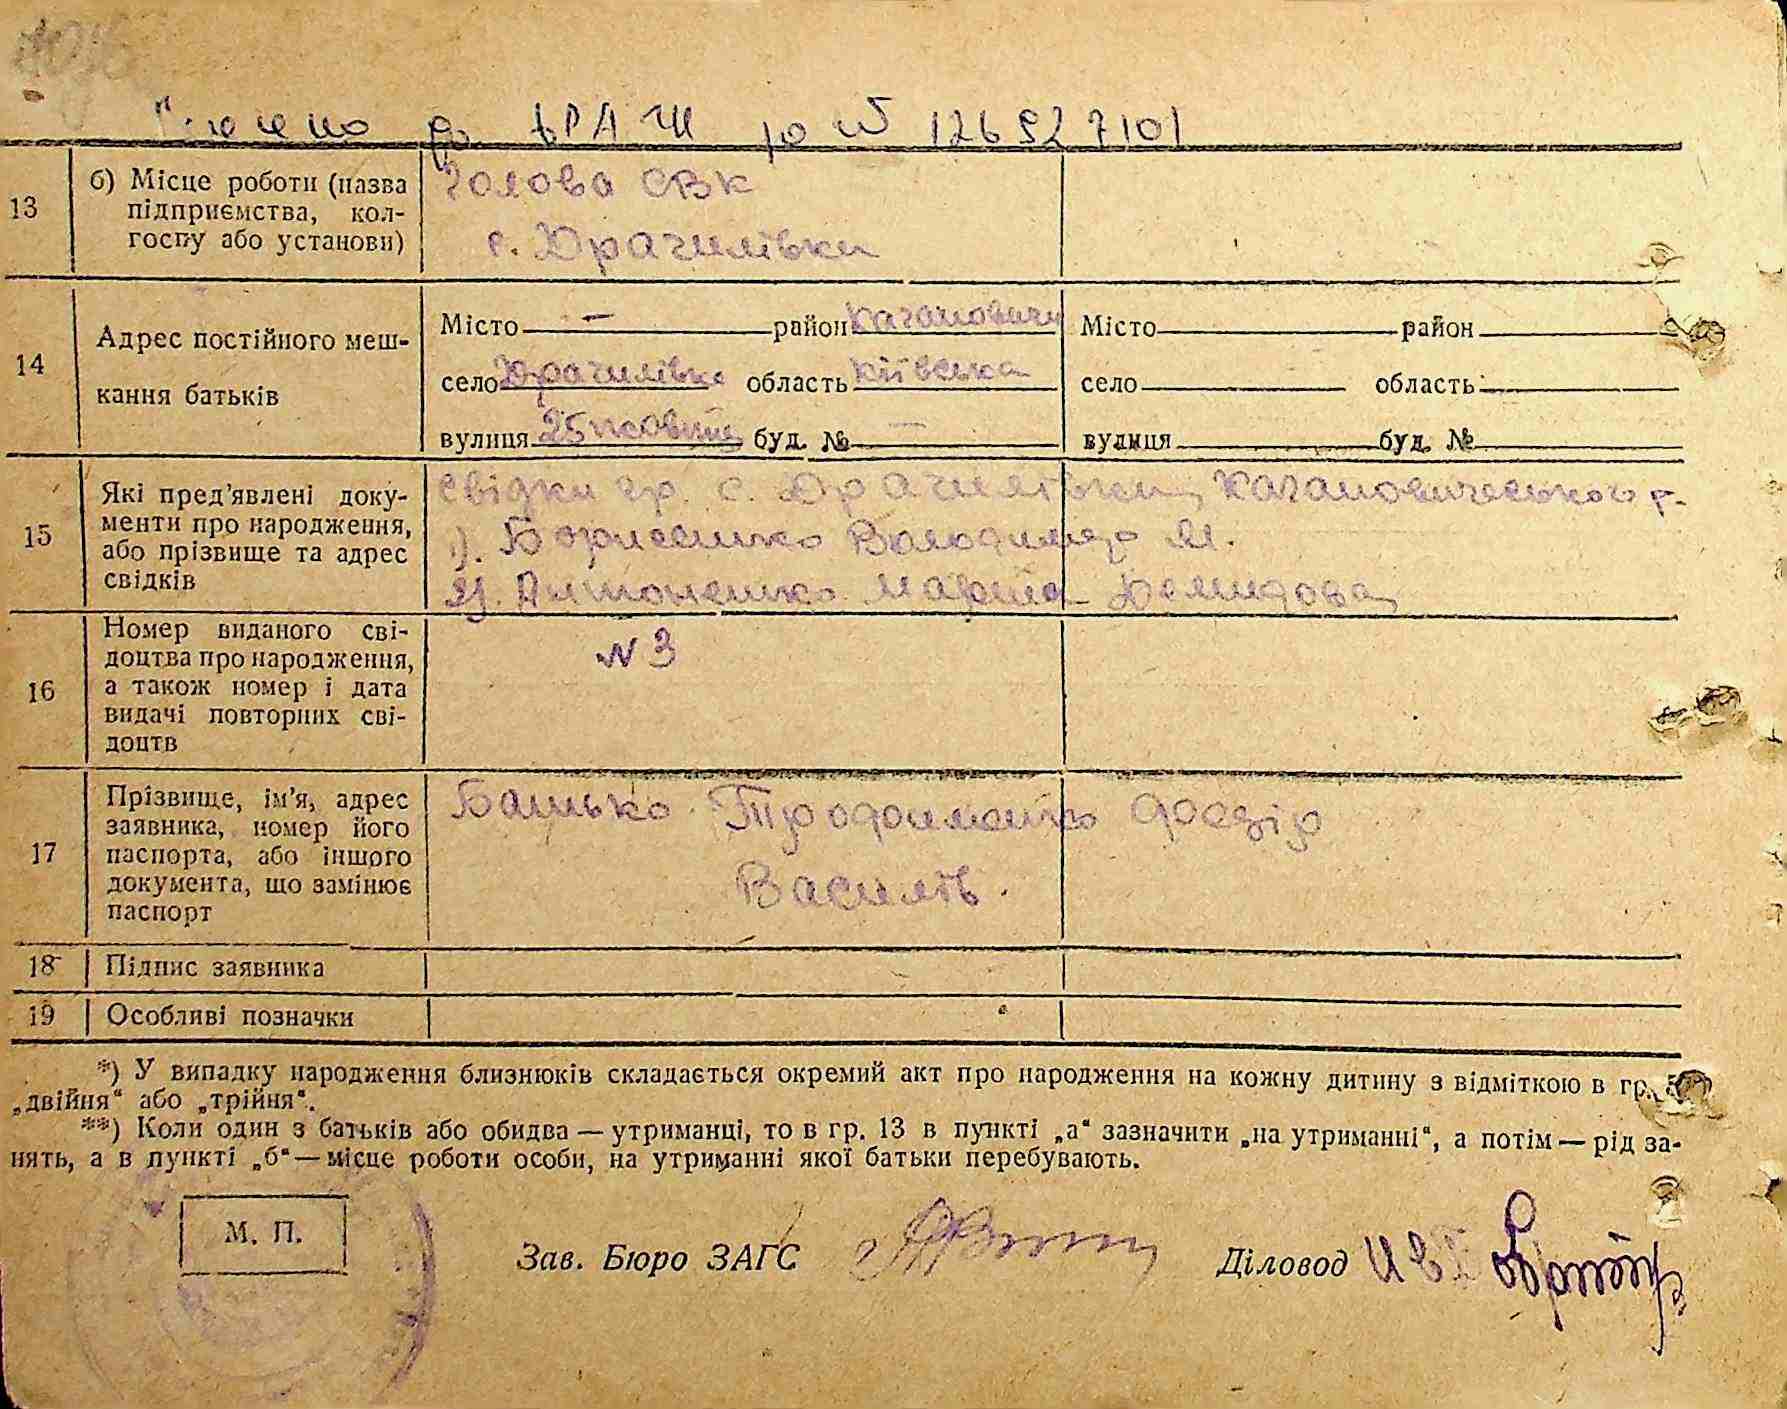 до ДРАЦС 126927101
13 б) Місце роботи (назва підприємства, кол-
госпу або установи)
Голова СВК
с. Драчилівки
14 Адрес постійного меш-
кання батьків
Місто — район Каганович Місто район
село Драчилівка область Київська село область
вулиця 25 жовтня буд. № — вулиця буд. №
15 Які пред'явлені доку-
менти про народження,
або прізвище та адрес
свідків
Свідки гр. с. Драчилівки, Кагановичеського р.
1). Борисенко Володимир М.
2). Антоненко Марія Демидова
16 Номер виданого сві-
доцтва про народження,
а також номер і дата
видачі повторних сві-
доцтв
N 3
17 Прізвище, ім'я, адрес
заявника, номер його
паспорта, або іншого
документа, що замінює
паспорт
Батько Трофименко
Василів.
18 Підпис заявника
19 Особливі позначки
*) У випадку народження близнюків складається окремий акт про народження на кожну дитину з відміткою в гр.
„двійня“ або „трійня“.
**) Коли один з батьків або обидва — утриманці, то в гр. 13 в пункті „а“ зазначити „на утриманні“, а потім — рід за-
нять, а в пункті „б“ — місце роботи особи, на утриманні якої батьки перебувають.
М. П.
Зав. Бюро ЗАГС Діловод